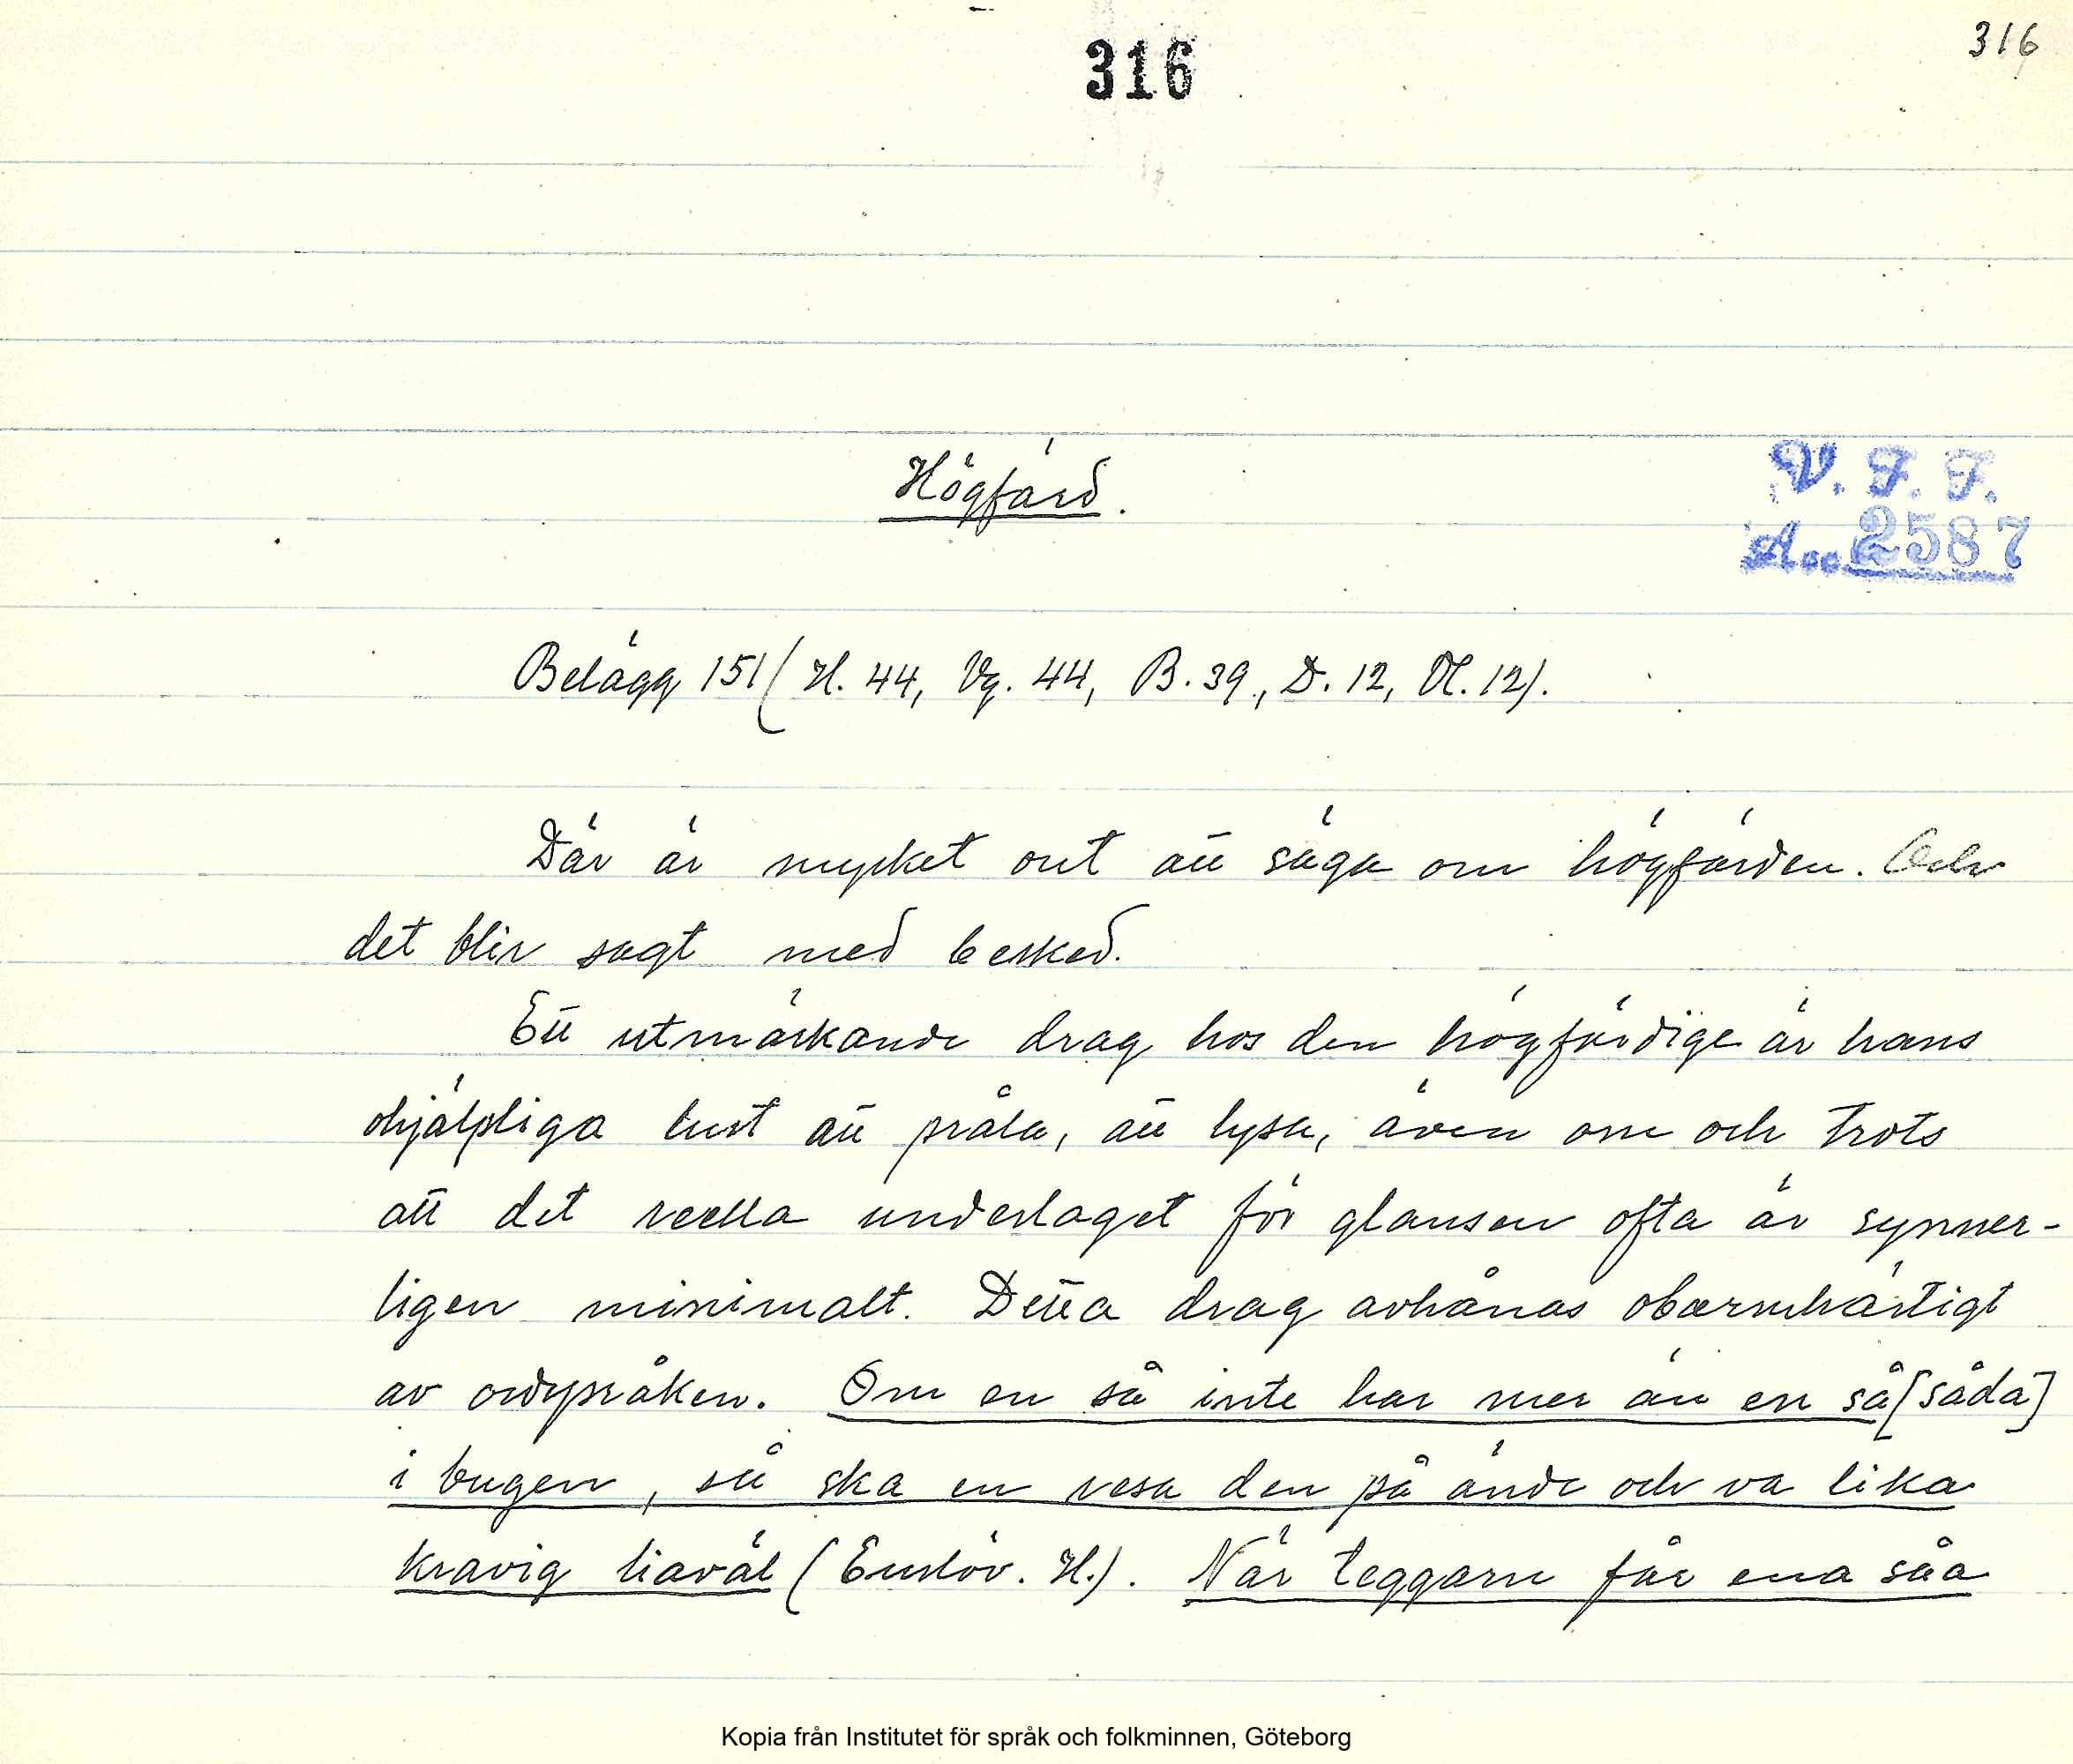 316
316
Högfärd.
V. F. F.
Acc. 2587
Belägg 151 (H. 44, Vg. 44, B. 39, D. 12, Öl. 12).
Där är mycket ont att säga om högfärden. Och
det blir sagt med besked.
Ett utmärkande drag hos den högfärdige är hans
ohjälpliga lust att pråla, att lysa, även om och trots
att det reella underlaget för glansen ofta är synner-
ligen minimalt. Detta drag avhånas obarmhärtigt
av ordspråken. Om en så inte har mer än en så [såda]
i bugen, så ska en resa den på ände och va lika
kravig liaväl (Enslöv. H.). När teggarn får ena såa
Kopia från Institutet för språk och folkminnen, Göteborg